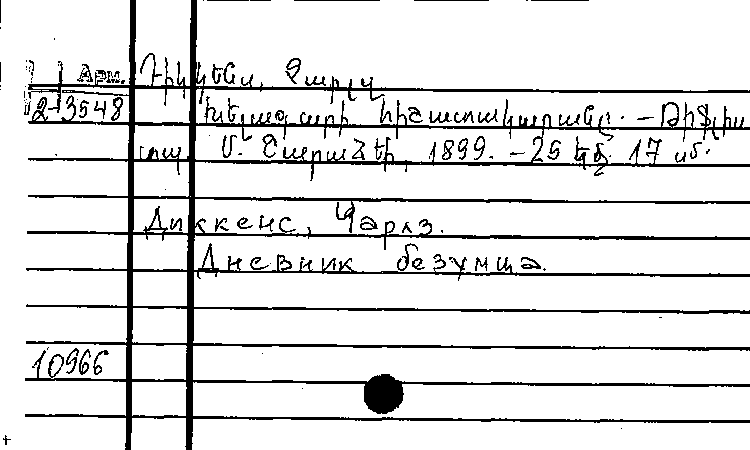 Арм. Դիկկենս, Չարլզ
2-3548 Խելագարի հիշատակարանը. – Թիֆլիս
տպ. Մ. Շարաձեի, 1899. – 25 եջ. 17 սմ.
Диккенс, Чарлз.
Дневник безумца.
10966